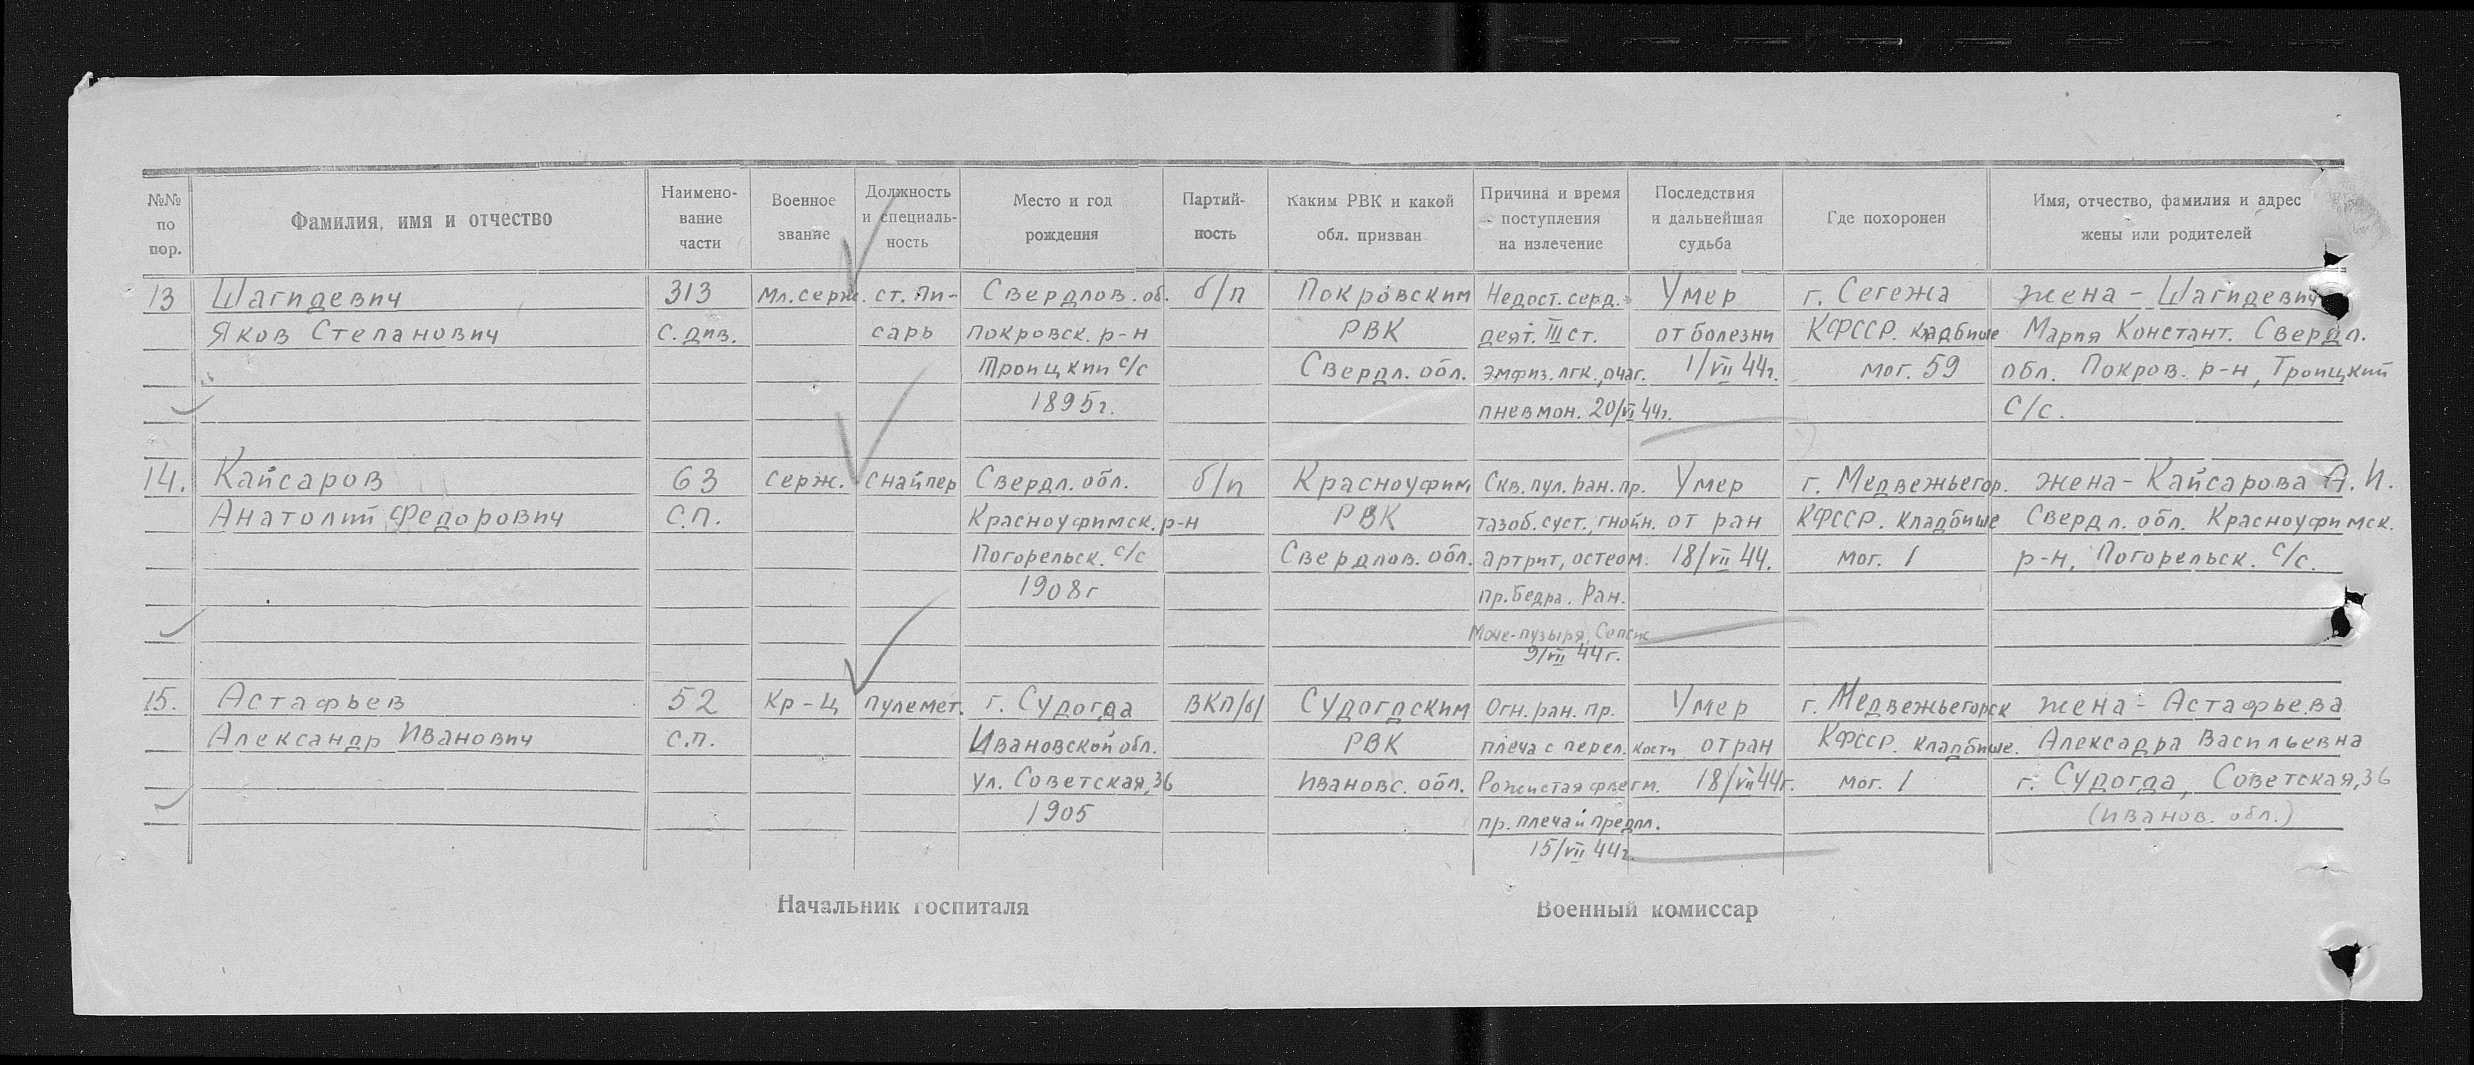 №№ по пор. Фамилия, имя и отчество Наимено-вание части Военное звание Должность и специаль-ность Место и год рождения Партий-ность Каким РВК и какой обл. призван Причина и время поступления на излечение Последствия и дальнейшая судьба Где похоронен Имя, отчество, фамилия и адрес жены или родителей
13 Шагидевич 313 Мл. серж. ст. пи- Свердлов. об. б/п Покровским Недост. серд. Умер г. Сегежа жена - Шагидевич
Яков Степанович с. див. сарь Покровск. р-н РВК деят. III ст. от болезни КФССР. кладбище Мария Констант. Свердл.
Троицкий с/с Свердл. обл. эмфиз. лгк., очаг. 1/VII 44г. мог. 59 обл. Покров. р-н, Троицкий
1895г. пневмон. 20/VI 44г. с/с.
14. Кайсаров 63 серж. снайпер Свердл. обл. б/п Красноуфим. Скв. пул. ран. пр. Умер г. Медвежьегор. жена - Кайсарова А. И.
Анатолий Федорович с.п. Красноуфимск. р-н РВК тазоб. суст., гнойн. от ран КФССР. кладбище Свердл. обл. Красноуфимск.
Погорельск. с/с Свердлов. обл. артрит, остеом. 18/VII 44. мог. 1 р-н, Погорельск. с/с.
1908г пр. бедра. Ран.
Моче-пузыря, Сепсис
9/VII 44г.
15. Астафьев 52 Кр-ц пулемет. г. Судогда ВКП/б/ Судогдским Огн. ран. пр. Умер г. Медвежьегорск жена - Астафьева
Александр Иванович с.п. Ивановской обл. РВК плеча с перел. кости от ран КФССР. кладбище. Алексадра Васильевна
ул. Советская, 36 Ивановс. обл. Рожистая флегм. 18/VII 44г. мог. 1 г. Судогда, Советская, 36
1905 пр. плеча и предпл. (Иванов. обл.)
15/VII 44г.
Начальник госпиталя Военный комиссар